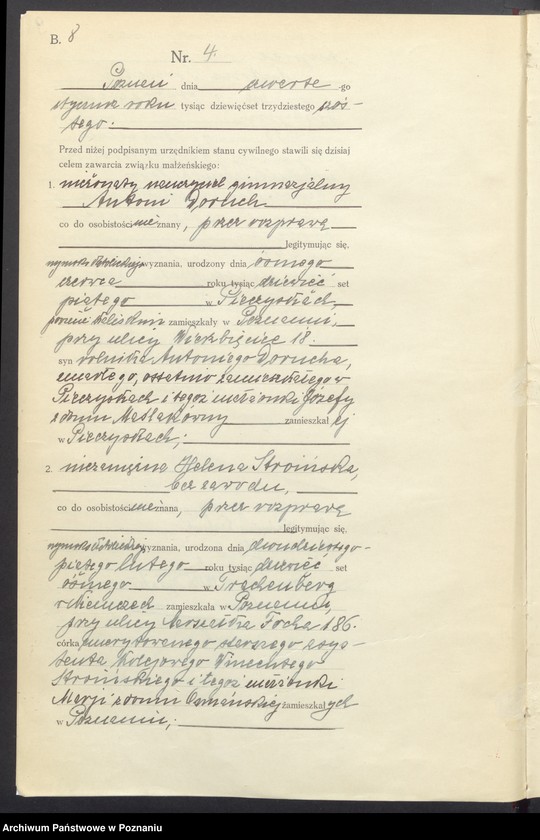 B. 8
Nr. 4.
Poznań dnia czwarte go
stycznia roku tysiąc dziewięćset trzydziestego szós-
tego.
Przed niżej podpisanym urzędnikiem stanu cywilnego stawili się dzisiaj
celem zawarcia związku małżeńskiego:
1. nieżonaty nauczyciel gimnazjalny
Antoni Doruch
co do osobistości nie znany, przez rozprawę
legitymując się,
rzymsko katolickiego wyznania, urodzony dnia ósmego
czerwca roku tysiąc dziewięć set
piątego w Pieczyskach
powiat Kaliskim zamieszkały w Poznaniu,
przy ulicy Wierzbięcice 18.
syn rolnika Antoniego Dorucha,
zmarłego, ostatnio zamieszkałego w
Pieczyskach i tegoż małżonki Józefy
z domu Maślakówny zamieszkał ej
w Pieczyskach;
2. niezamężna Helena Stroińska,
bez zawodu,
co do osobistości nie znana, przez rozprawę
legitymując się,
rzymsko katolickiej wyznania, urodzona dnia dwudziestego-
piątego lutego roku tysiąc dziewięć set
ósmego w Trachenberg
w Niemczech zamieszkała w Poznaniu,
przy ulicy Marszałka Focha 186.
córka emerytowanego starszego asys-
tenta kolejowego Wincentego
Stroińskiego i tegoż małżonki
Marji z domu zamieszkał ych
w Poznaniu;
Archiwum Państwowe w Poznaniu